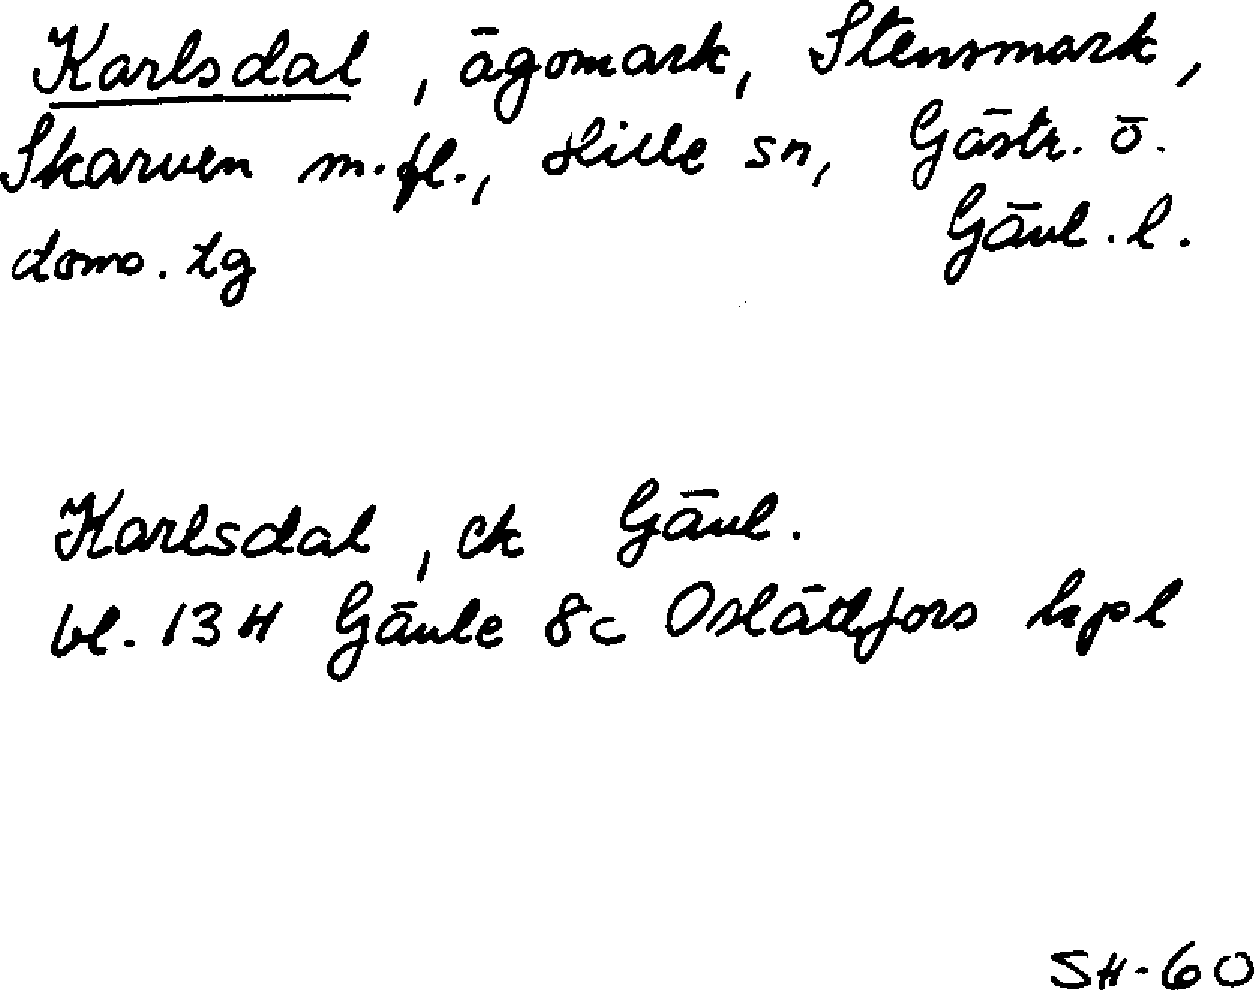 Karlsdal, ägomark, Stensmark,
Skarven m.fl., Hille sn, Gästr. ö.
doms. tg Gävl. l.
Karlsdal, ek Gävl.
bl. 13 H Gävle 8c Oslättfors kpl
SH-60